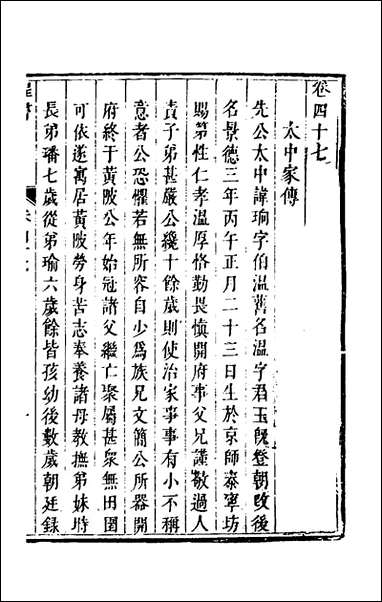 卷四十七
太中家傳
先公太中諱珦字伯溫舊名溫字君玉旣登朝改後
名景德三年丙午正月二十三日生於京師泰寧坊
賜第性仁孝溫厚恪勤畏愼開府事父兄謹敬過人
責子弟甚嚴公纔十餘歲則使治家事事有小不稱
意者公恐懼若無所容自少爲族兄文簡公所器開
府終于黃陂公年始冠諸父繼亡聚屬甚衆無田園
可依遂寓居黃陂勞身苦志奉養諸母教撫弟妹時
長弟璠七歲從弟瑜六歲餘皆孩幼後數歲朝廷錄